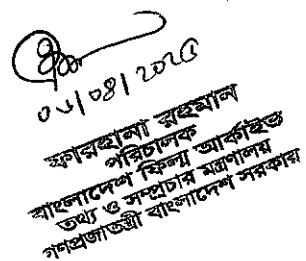 ০৬/০৪/২০২৫
ফারহানা রহমান
পরিচালক
বাংলাদেশ ফিল্ম আর্কাইভ
তথ্য ও সম্প্রচার মন্ত্রণালয়
গণপ্রজাতন্ত্রী বাংলাদেশ সরকার